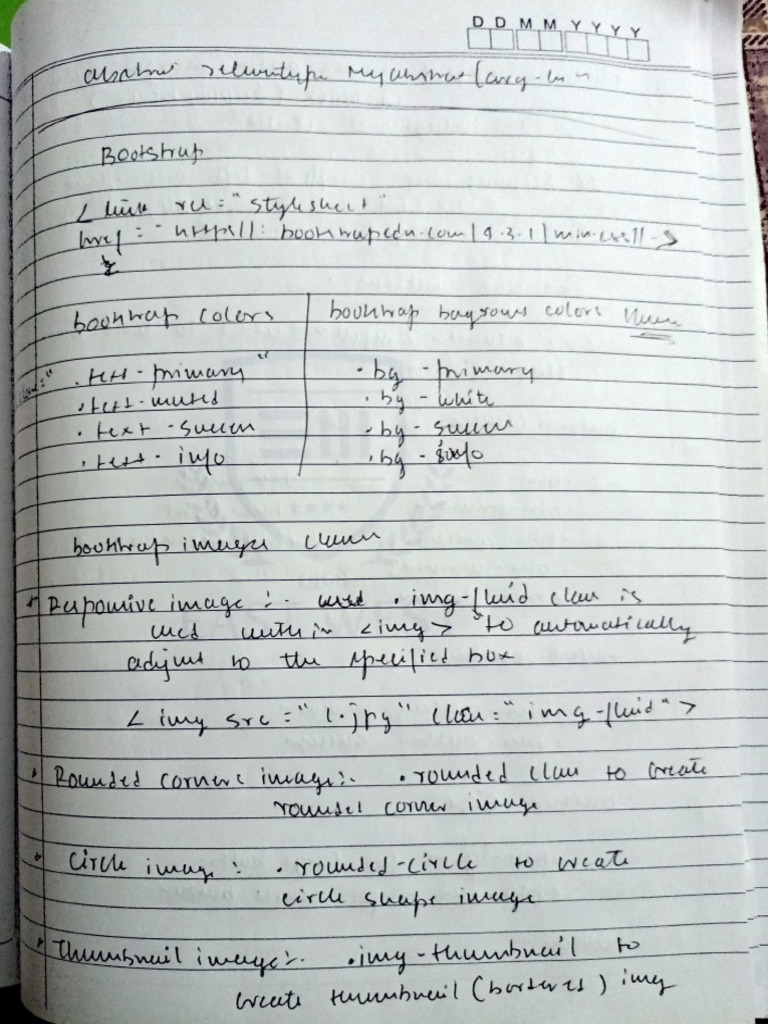 D D M M Y Y Y Y
abstract returntype myabstract (arg-
Bootstrap
< link rel = "stylesheet"
href = "https//: bootstrapcdn.com/4.3.1/min.css//->
bootstrap colors
bootstrap background colors classes
.text-primary"
.text-muted
.text-success
.text-info
.bg-primary
.bg-white
.bg-success
.bg-info
bootstrap images classes
* Responsive image :- .img-fluid class is
used within <img> to automatically
adjust to the specified box
< img src = "1.jpg" class = "img-fluid" >
* Rounded corners image:- .rounded class to create
rounded corner image
* Circle image: .rounded-circle to create
circle shape image
* Thumbnail image:- .img-thumbnail to
create thumbnail (borderes) img